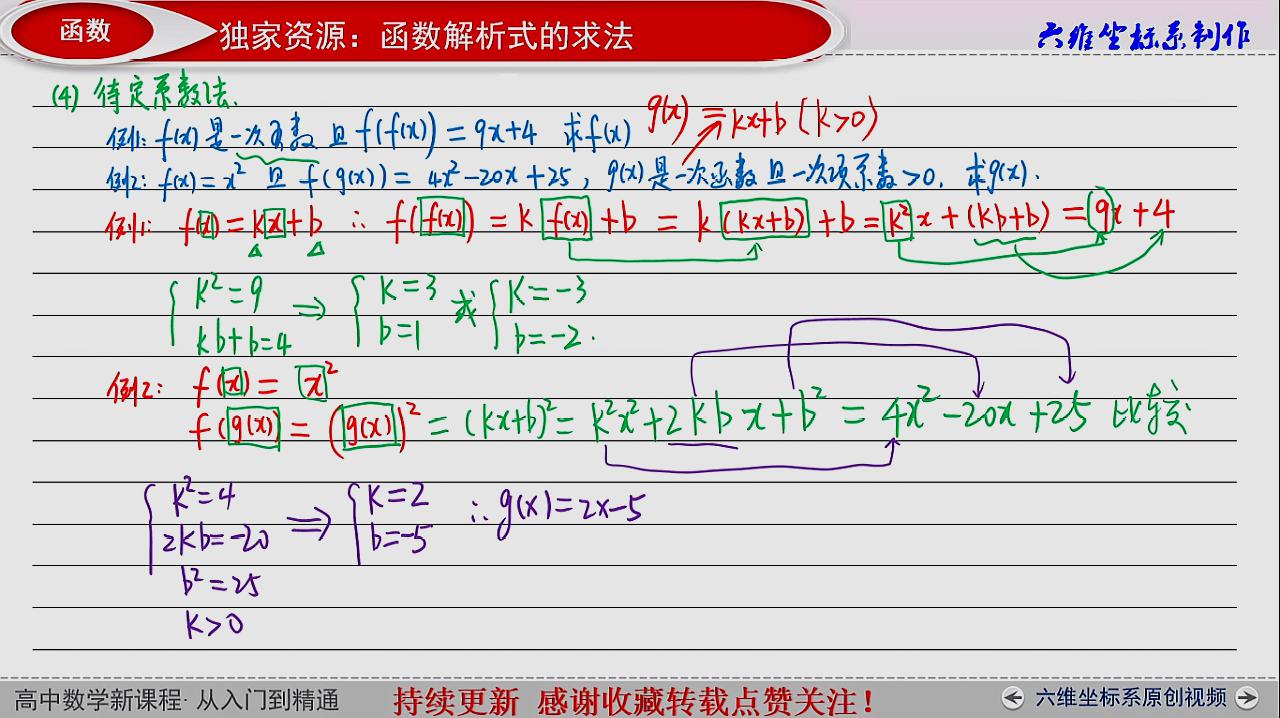 函数
独家资源：函数解析式的求法
六维坐标系制作
(4) 待定系数法.
例1: f(x)是一次函数且f(f(x))=9x+4 求f(x)
g(x)=kx+b (k>0)
例2: f(x)=x² 且 f(g(x))=4x²-20x+25, g(x)是一次函数且一次项系数>0. 求g(x).
例1: f(x)=kx+b ∴ f(f(x))=k f(x)+b = k(kx+b)+b=k²x+(kb+b)=9x+4
{k²=9 kb+b=4 ⇒ {k=3 b=1 或 {k=-3 b=-2.
例2: f(x)=x²
f(g(x))=(g(x))²=(kx+b)²=k²x²+2kbx+b²=4x²-20x+25 比较
{k²=4 2kb=-20 b²=25 k>0 ⇒ {k=2 b=-5 ∴g(x)=2x-5
高中数学新课程·从入门到精通
持续更新 感谢收藏转载点赞关注！
六维坐标系原创视频